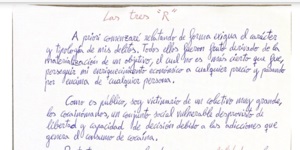 Las tres "R"
A priori comenzaré relatando de forma exigua el carácter
y tipología de mis delitos. Todos ellos fueron fruto derivado de la
materialización de un objetivo, el cual no es más cierto que fue,
perseguir mi enriquecimiento económico a cualquier precio y pasando
por encima de cualquier persona.
Como es público, soy victimario de un colectivo muy grande,
los consumidores, un conjunto social vulnerable desprovisto de
libertad y capacidad de decisión debido a las adicciones que
genera el consumo de cocaína.